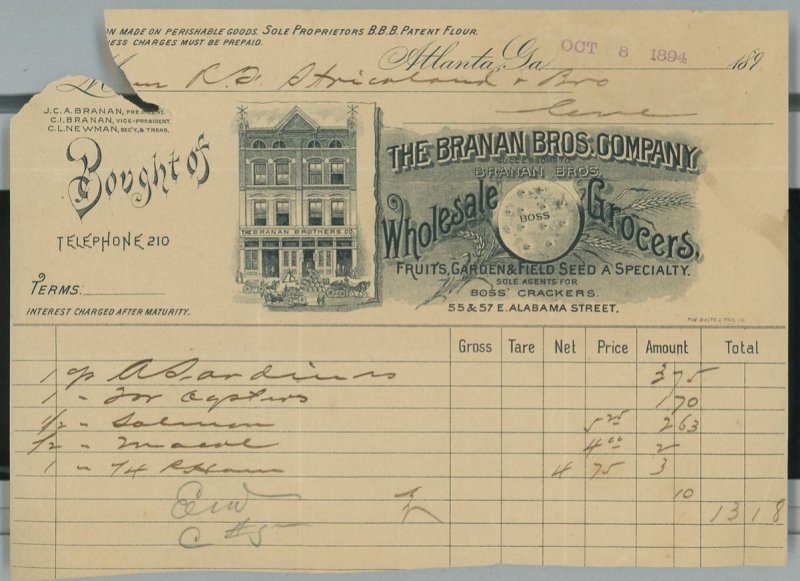 ON MADE ON PERISHABLE GOODS. SOLE PROPRIETORS B.B.B. PATENT FLOUR.
ESS CHARGES MUST BE PREPAID.
Atlanta, Ga OCT 8 1894 189
R. S. Strickland & Bro
J.C.A. BRANAN, PRESIDENT.
C.I. BRANAN, VICE-PRESIDENT.
C.L. NEWMAN, SEC'Y, & TREAS.
Bought of
TELEPHONE 210
TERMS:
INTEREST CHARGED AFTER MATURITY.
THE BRANAN BROTHERS CO.
THE BRANAN BROS. COMPANY
SUCCESSORS TO
BRANAN BROS.
Wholesale BOSS Grocers.
FRUITS, GARDEN & FIELD SEED A SPECIALTY.
SOLE AGENTS FOR
BOSS' CRACKERS.
55 & 57 E. ALABAMA STREET.
Gross Tare Net Price Amount Total
1 A Sardines 3 75
1 " Oysters 1 70
1/2 " Salmon 5 25 2 63
1/2 " 4 00 2
1 " 4 75 3
10
13 18
C #5